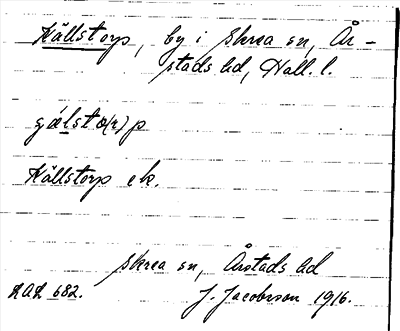 Källstorp, by i Skrea sn, År-
stads hd, Hall. l.
gælstɷ(r)p
Källstorp ek.
Skrea sn, Årstads hd
LAL 682. J. Jacobson 1916.